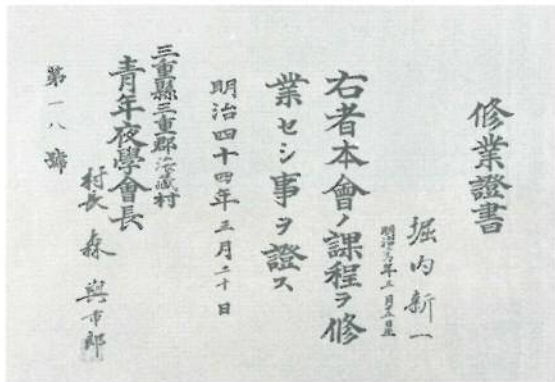 修業證書
堀内新一
明治 年 月 日生
右者本會ノ課程ヲ修
業セシ事ヲ證ス
明治四十四年三月二十日
三重縣三重郡海藏村
青年夜學會長
村長 森 與市郎
第一八號